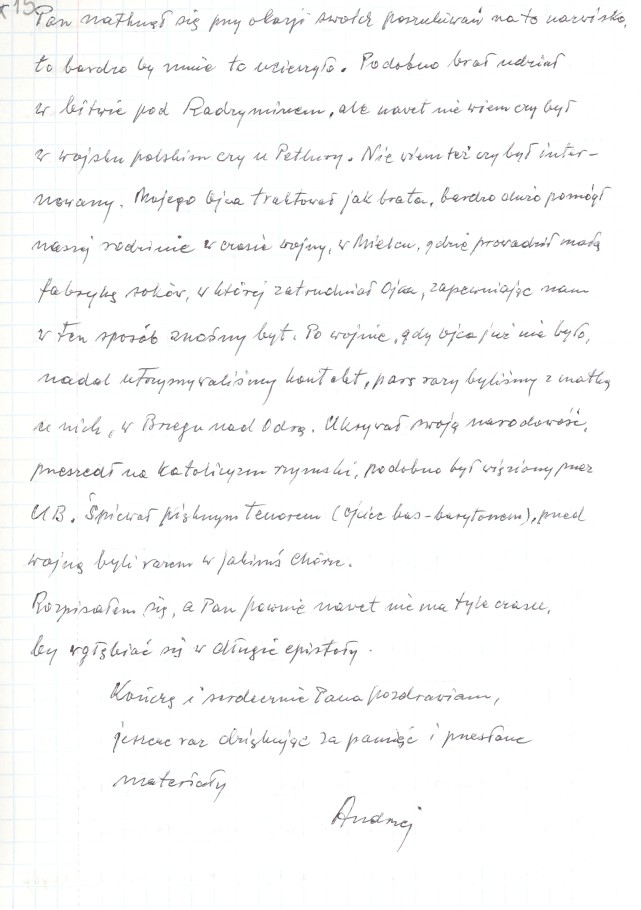 15
Pan natknął się przy okazji swoich poszukiwań na to nazwisko,
to bardzo by mnie to ucieszyło. Podobno brał udział
w bitwie pod Radzyminem, ale nawet nie wiem czy był
w wojsku polskim czy u Petlury. Nie wiem też czy był inter-
nowany. Mojego Ojca traktował jak brata, bardzo dużo pomógł
naszej rodzinie w czasie wojny, w Mielcu, gdzie prowadził małą
fabrykę soków, w której zatrudniał Ojca, zapewniając nam
w ten sposób znośny byt. Po wojnie, gdy Ojca już nie było,
nadal utrzymywaliśmy kontakt, parę razy byliśmy z matką
u nich, w Brzegu nad Odrą. Ukrywał swoją narodowość,
przeszedł na katolicyzm rzymski, podobno był więziony przez
UB. Śpiewał pięknym tenorem (Ojciec bas-barytonem), przed
wojną byli razem w jakimś chórze.
Rozpisałem się, a Pan pewnie nawet nie ma tyle czasu,
by wgłębiać się w długie epistoły.
Kończę i serdecznie Pana pozdrawiam,
jeszcze raz dziękując za pamięć i przesłane
materiały
Andrzej